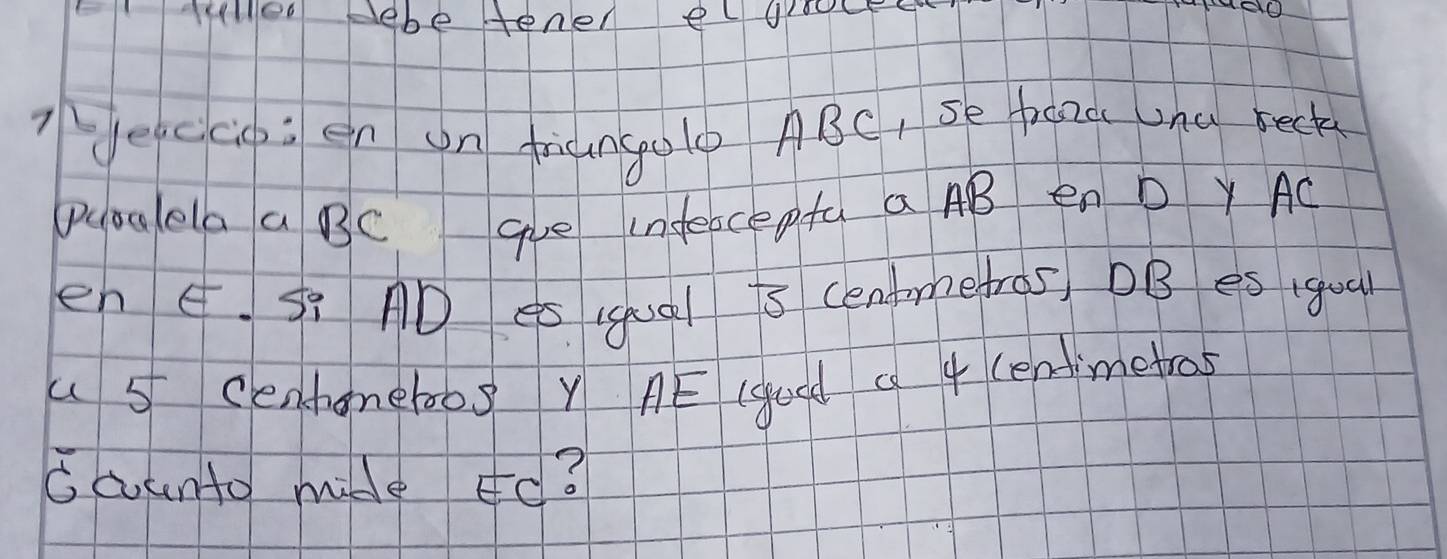 debe tener el
1 Ejercicio: en un triangulo ABC, se traza una recta
paralela a BC que intercepta a AB en D Y AC
en E. Si AD es igual 3 centimetros, DB es igual
a 5 centimetros Y AE igual a 4 centimetros
¿Cuanto mide EC?